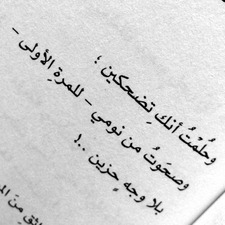 وحلمتُ أنكِ تضحكين ؛
وصحَوتُ من نومي - للمرةِ الأولى -
بلا وجهٍ حزين ..!